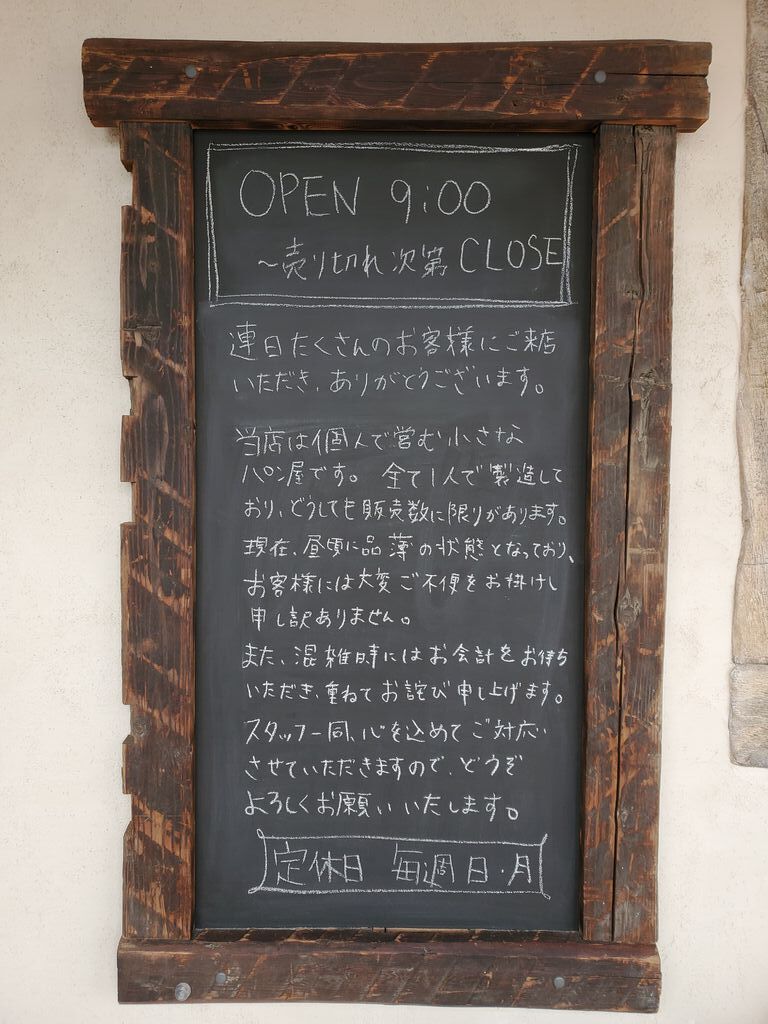 OPEN 9:00
～売り切れ次第 CLOSE
連日たくさんのお客様にご来店
いただき、ありがとうございます。
当店は個人で営む小さな
パン屋です。 全て1人で製造して
おり、どうしても販売数に限りがあります。
現在、昼頃に品薄の状態となっており、
お客様には大変ご不便をお掛けし
申し訳ありません。
また、混雑時にはお会計をお待ち
いただき、重ねてお詫び申し上げます。
スタッフ一同、心を込めてご対応
させていただきますので、どうぞ
よろしくお願いいたします。
定休日 毎週日・月